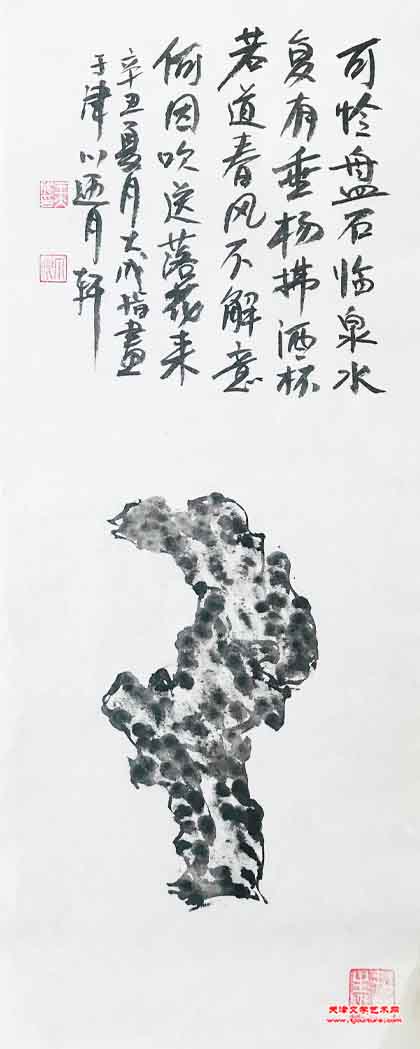 可怜盘石临泉水
复有垂杨拂酒杯
若道春风不解意
何因吹送落花来
辛丑夏月大成指畫
于津月轩
天津文学艺术网